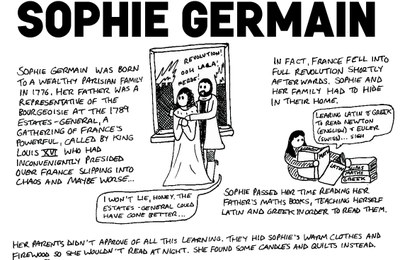 SOPHIE GERMAIN
SOPHIE GERMAIN WAS BORN
TO A WEALTHY PARISIAN FAMILY
IN 1776. HER FATHER WAS A
REPRESENTATIVE OF THE
BOURGEOISIE AT THE 1789
ESTATES-GENERAL, A
GATHERING OF FRANCE'S
POWERFUL, CALLED BY KING
LOUIS XVI WHO HAD
INCONVENIENTLY PRESIDED
OVER FRANCE SLIPPING INTO
CHAOS AND MAYBE WORSE...
REVOLUTION!
OOH LALA!
I WON'T LIE, HONEY, THE
ESTATES-GENERAL COULD
HAVE GONE BETTER...
IN FACT, FRANCE FELL INTO
FULL REVOLUTION SHORTLY
AFTERWARDS. SOPHIE AND
HER FAMILY HAD TO HIDE
IN THEIR HOME.
LEARING LATIN & GREEK
TO READ NEWTON
(ENGLISH) & EULER
(SWISS)... SIGH
MATHS
GREEK
SOPHIE PASSED HER TIME READING HER
FATHER'S MATHS BOOKS, TEACHING HERSELF
LATIN AND GREEK IN ORDER TO READ THEM.
HER PARENTS DIDN'T APPROVE OF ALL THIS LEARNING. THEY HID SOPHIE'S WARM CLOTHES AND
FIREWOOD SO SHE WOULDN'T READ AT NIGHT. SHE FOUND SOME CANDLES AND QUILTS INSTEAD.